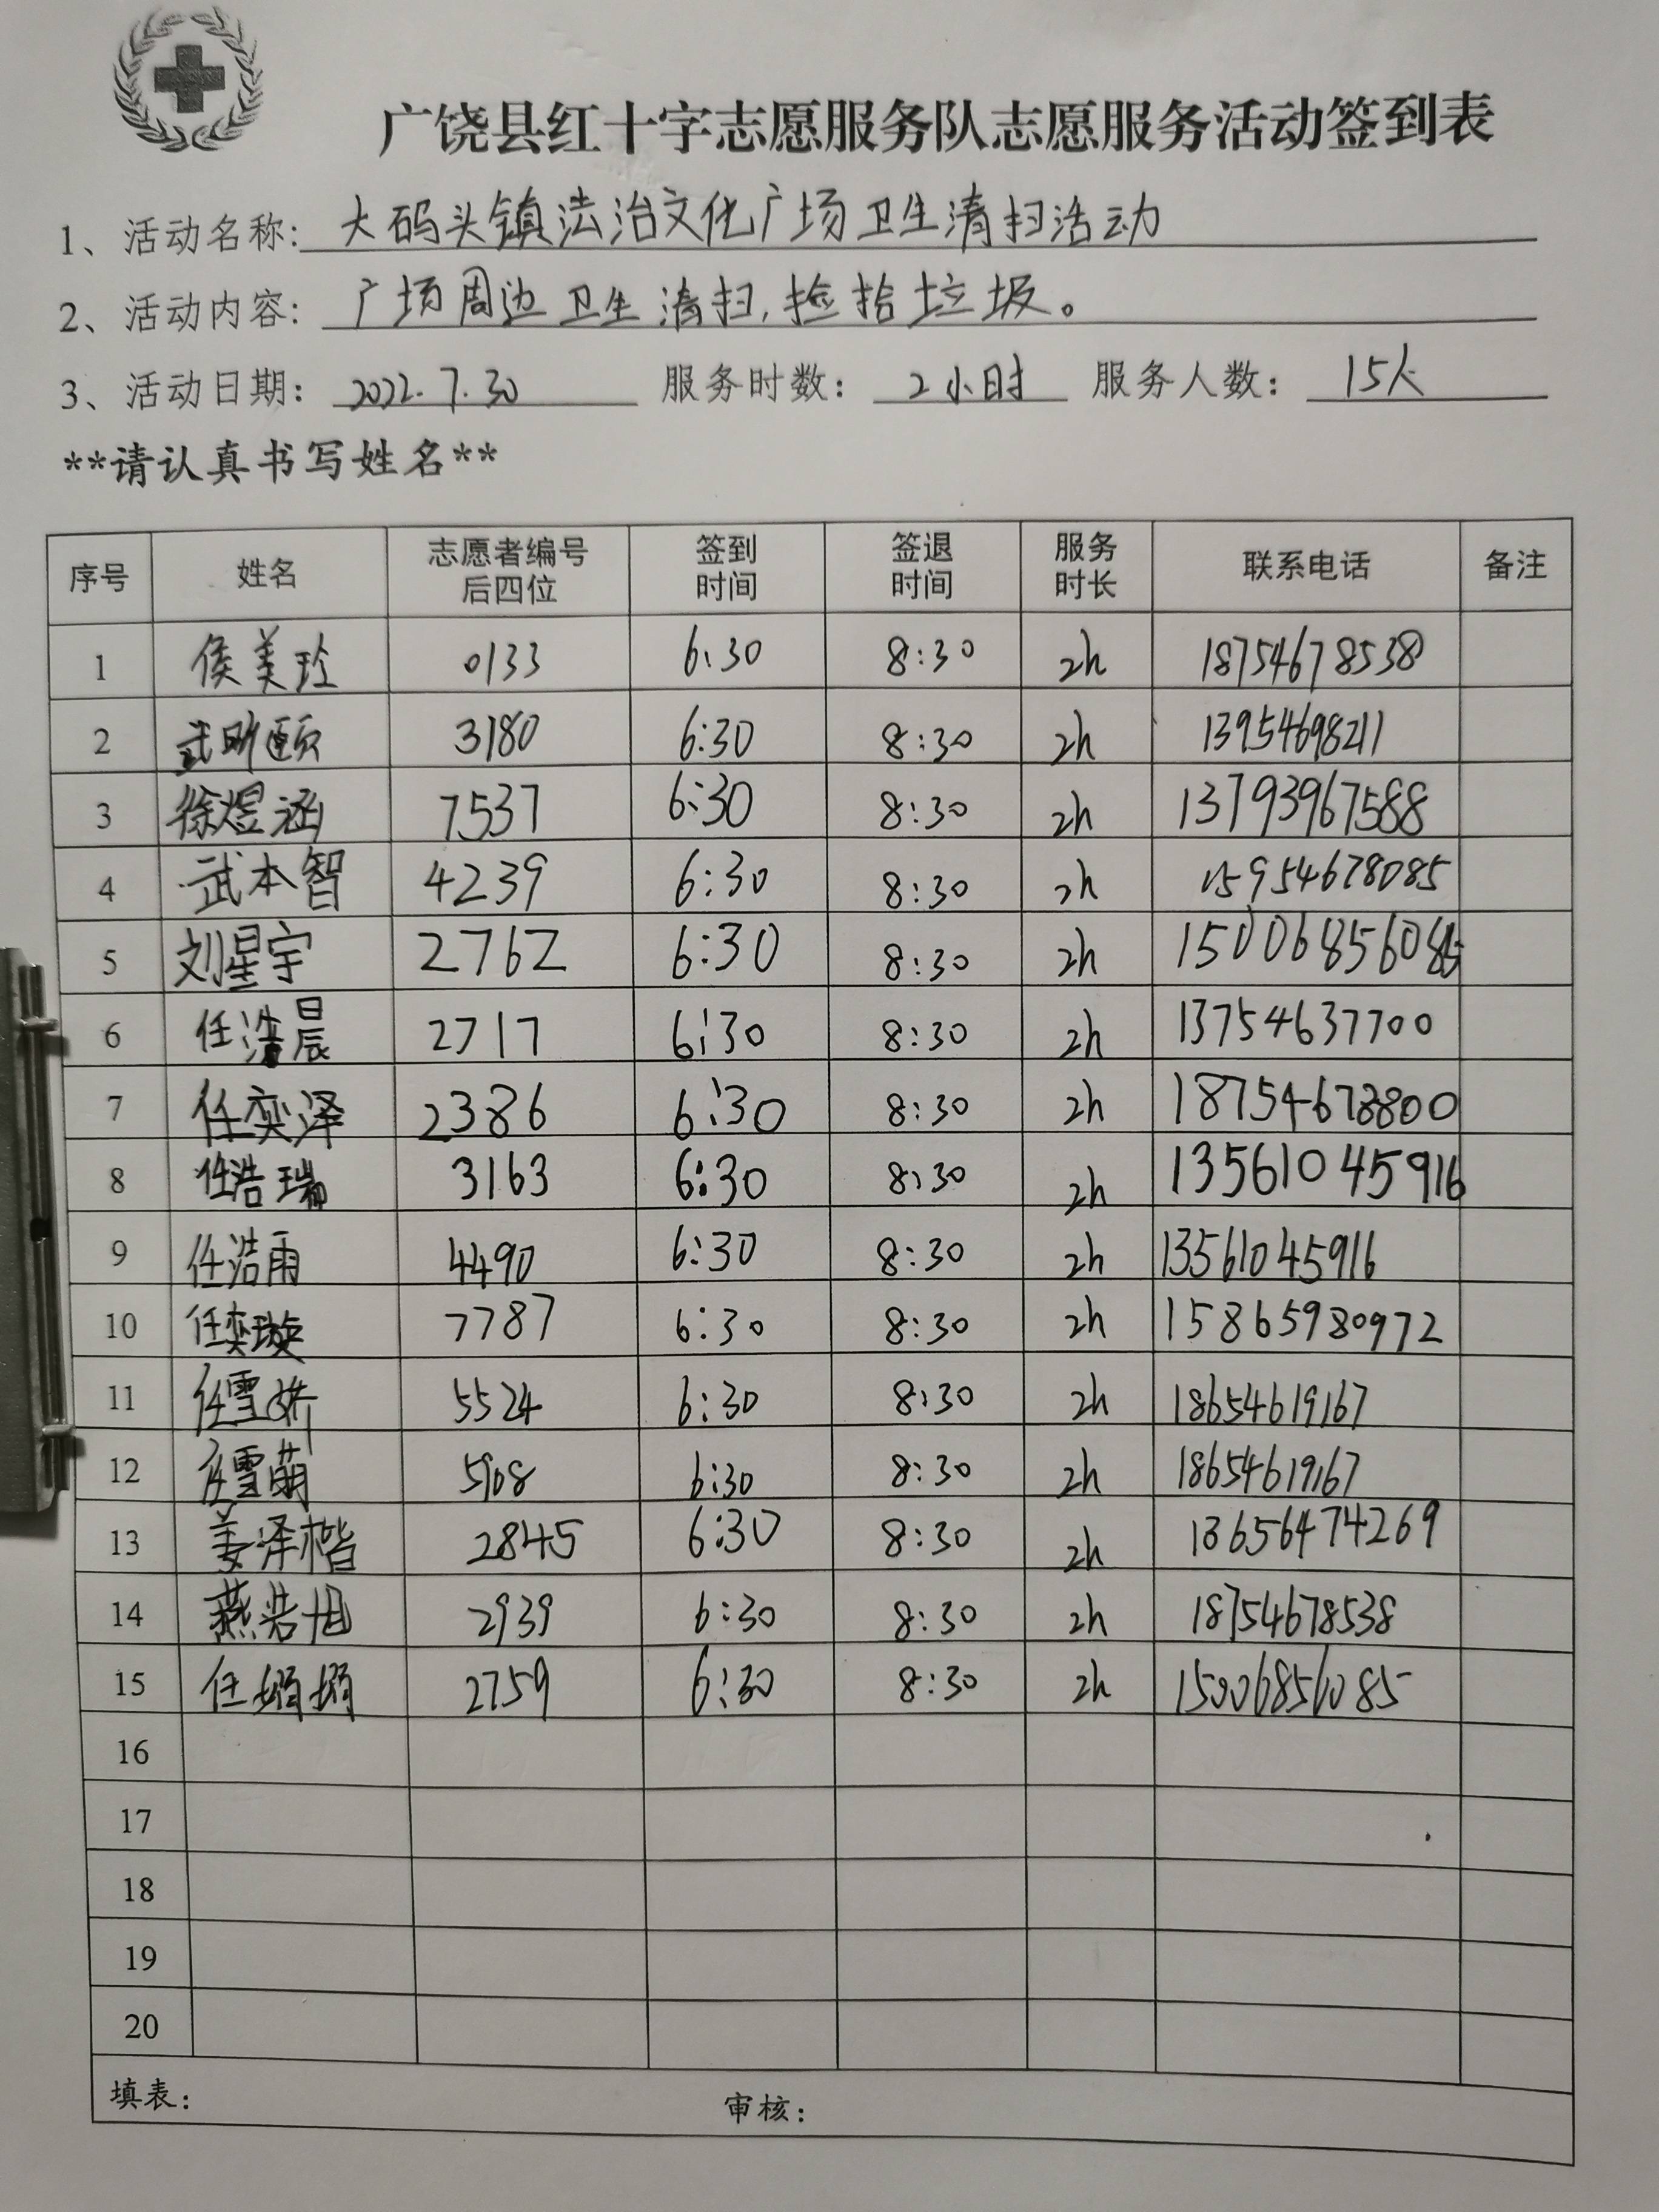 广饶县红十字志愿服务队志愿服务活动签到表
1、活动名称: 大码头镇法治文化广场卫生清扫活动
2、活动内容: 广场周边卫生清扫,捡拾垃圾。
3、活动日期: 2022.7.30 服务时数: 2小时 服务人数: 15人
**请认真书写姓名**
序号 姓名 志愿者编号后四位 签到时间 签退时间 服务时长 联系电话 备注
1 侯美玲 0133 6:30 8:30 2h 18754678538
2 武昕颐 3180 6:30 8:30 2h 13954698211
3 徐煜涵 7537 6:30 8:30 2h 13793967588
4 武本智 4239 6:30 8:30 2h 15954678085
5 刘星宇 2762 6:30 8:30 2h 15006856085
6 任浩晨 2717 6:30 8:30 2h 13754637700
7 任奕泽 2386 6:30 8:30 2h 18754678800
8 任浩瑞 3163 6:30 8:30 2h 13561045916
9 任浩雨 4490 6:30 8:30 2h 13561045916
10 任奕璇 7787 6:30 8:30 2h 15865980972
11 任雪娇 5524 6:30 8:30 2h 18654619167
12 任雪萌 5908 6:30 8:30 2h 18654619167
13 姜泽楷 2845 6:30 8:30 2h 13656474269
14 燕浩旭 2939 6:30 8:30 2h 18754678538
15 任娟娟 2759 6:30 8:30 2h 15006856085
16
17
18
19
20
填表: 审核: